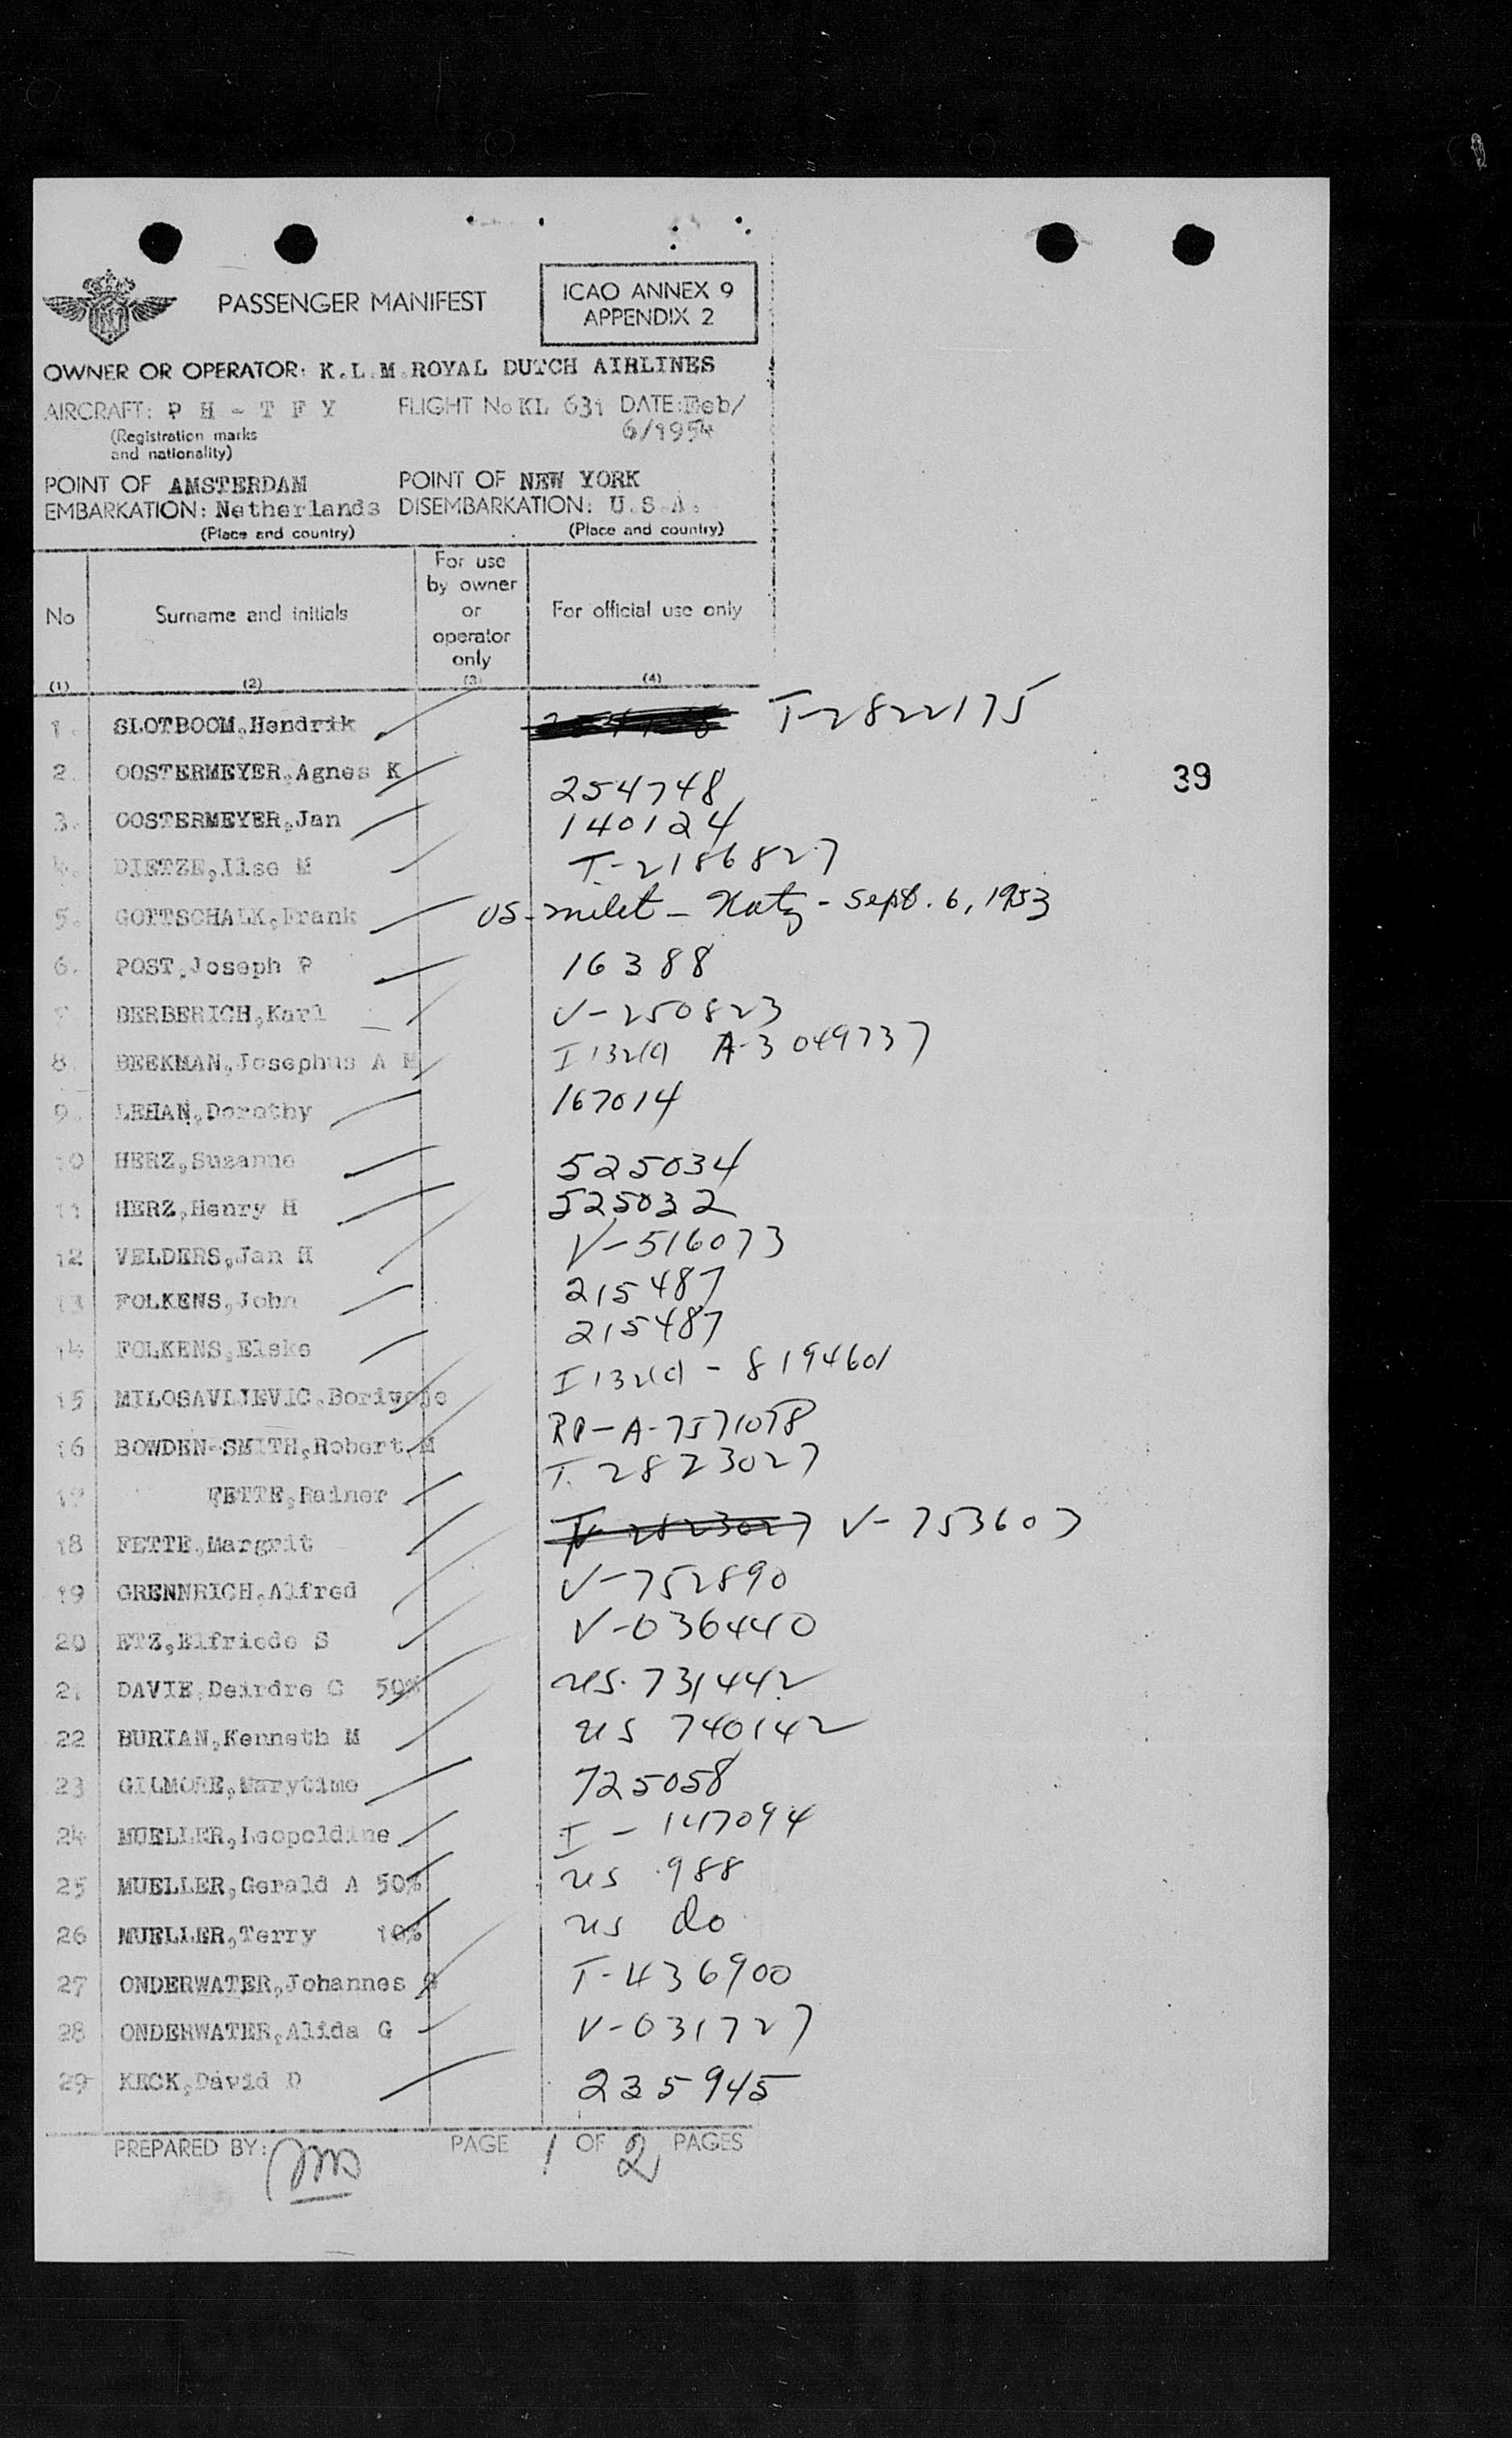 PASSENGER MANIFEST
ICAO ANNEX 9
APPENDIX 2
OWNER OR OPERATOR: K.L.M. ROYAL DUTCH AIRLINES
AIRCRAFT: P H - T F Y FLIGHT No KL 631 DATE: Feb/
6/1954
(Registration marks
and nationality)
POINT OF AMSTERDAM POINT OF NEW YORK
EMBARKATION: Netherlands DISEMBARKATION: U.S.A.
(Place and country) (Place and country)
No Surname and initials For use by owner or operator only For official use only
(1) (2) (3) (4)
1. SLOTBOOM, Hendrik T-2822175
39
2. OOSTERMEYER, Agnes K 254748
3. OOSTERMEYER, Jan 140124
4. DIETZE, Ilse M T-2186827
5. GOTTSCHALK, Frank US - milet - Natz - Sept. 6, 1953
6. POST, Joseph P 16388
7 BERBERICH, Karl V-250823
8. BEEKMAN, Josephus A M I 132(a) A-3 049737
9. LEHAN, Dorothy 167014
10 HERZ, Suzanne 525034
11 HERZ, Henry H 525032
12 VELDERS, Jan H V-516073
13 FOLKENS, John 215487
14 FOLKENS, Elske 215487
15 MILOSAVLJEVIC, Borivoje I 132(a) - 8194601
16 BOWDEN-SMITH, Robert M RP-A-7571078
17 FETTE, Rainer T. 2823027
18 FETTE, Margrit T-2823027 V-753607
19 GRENNRICH, Alfred V-752890
20 ETZ, Elfriede S V-036440
21 DAVIE, Deirdre C 50% us. 731442
22 BURIAN, Kenneth M us 740142
23 GILMORE, Marytime 725058
24 MUELLER, Leopoldine I - 147094
25 MUELLER, Gerald A 50% us 988
26 MUELLER, Terry 10% us do
27 ONDERWATER, Johannes T-436900
28 ONDERWATER, Alida G V-031727
29 KECK, David D 235945
PREPARED BY: PAGE 1 OF 2 PAGES